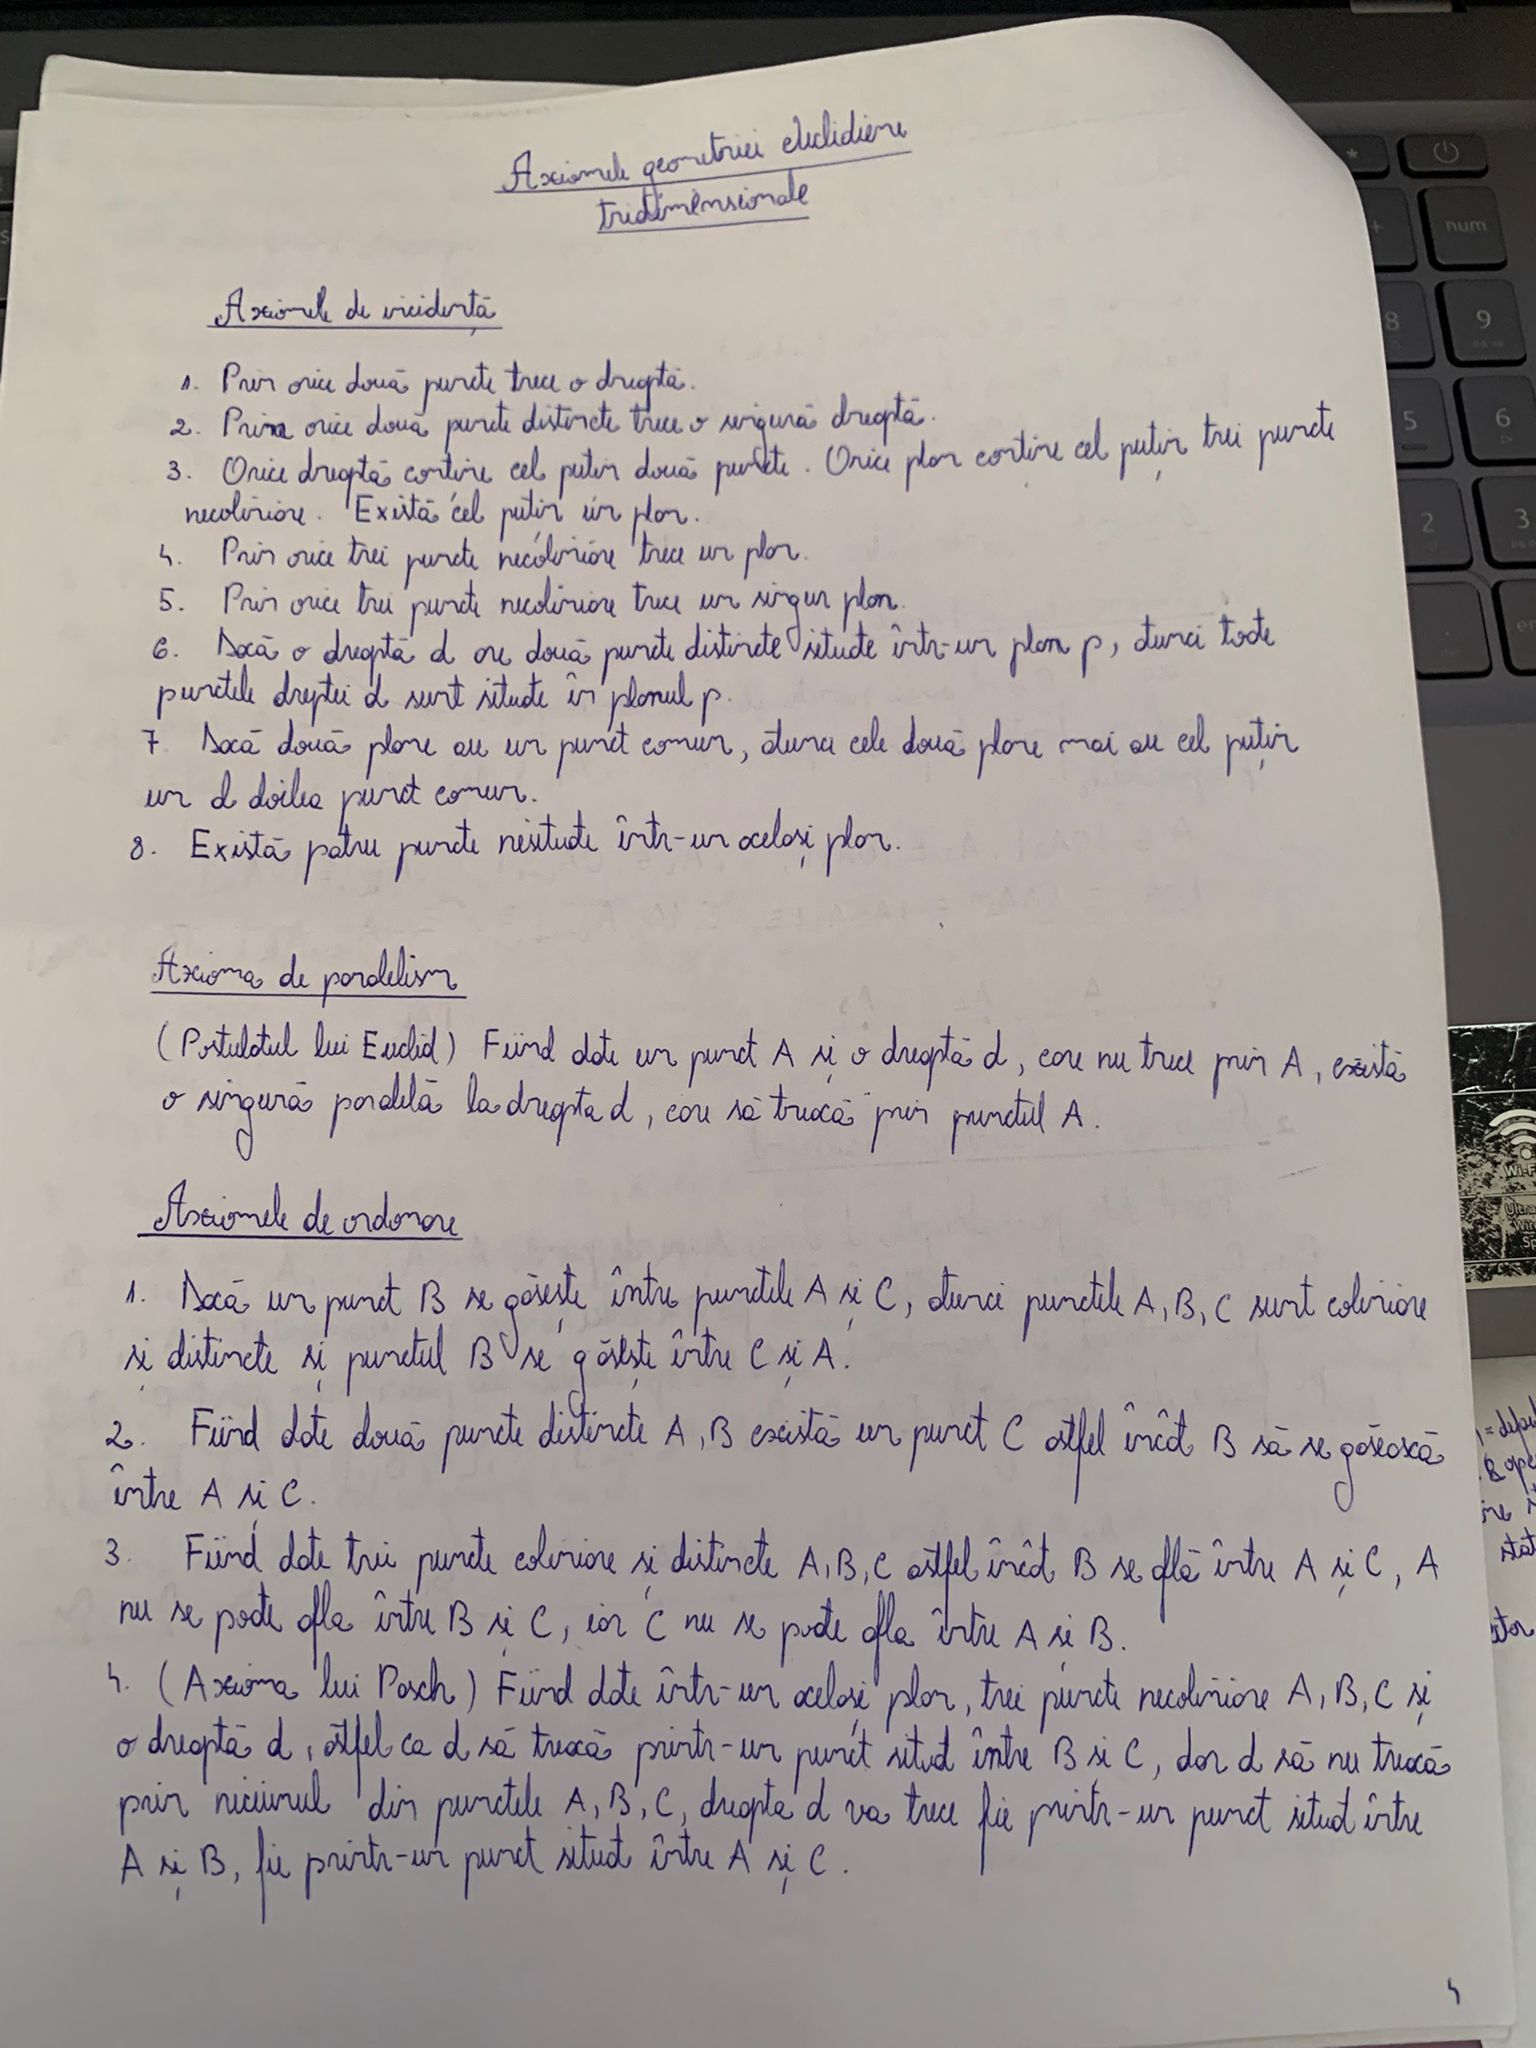 Axiomele geometriei euclidiene
tridimensionale
Axiomele de incidență
1. Prin orice două puncte trece o dreaptă.
2. Prin orice două puncte distincte trece o singură dreaptă.
3. Orice dreaptă conține cel puțin două puncte. Orice plan conține cel puțin trei puncte
necoliniare. Există cel puțin un plan.
4. Prin orice trei puncte necoliniare trece un plan.
5. Prin orice trei puncte necoliniare trece un singur plan.
6. Dacă o dreaptă d are două puncte distincte situate într-un plan p, atunci toate
punctele dreptei d sunt situate în planul p.
7 Dacă două plane au un punct comun, atunci cele două plane mai au cel puțin
un al doilea punct comun.
8. Există patru puncte nesituate într-un același plan.
Axioma de paralelism
(Postulatul lui Euclid) Fiind date un punct A și o dreaptă d, care nu trece prin A, există
o singură paralelă la dreapta d, care să treacă prin punctul A.
Axiomele de ordonare
1. Dacă un punct B se găsește între punctele A și C, atunci punctele A, B, C sunt coliniare
și distincte și punctul B se găsește între C și A.
2. Fiind date două puncte distincte A, B există un punct C astfel încât B să se găsească
între A și C.
3. Fiind date trei puncte coliniare și distincte A, B, C astfel încât B se află între A și C, A
nu se poate afla între B și C, iar C nu se poate afla între A și B.
4. (Axioma lui Pasch) Fiind date într-un același plan, trei puncte necoliniare A, B, C și
o dreaptă d, astfel ca d să treacă printr-un punct situat între B si C, dar d să nu treacă
prin niciunul din punctele A, B, C, dreapta d va trece fie printr-un punct situat între
A și B, fie printr-un punct situat între A și C.
4
num
8
9
5
6
2
3